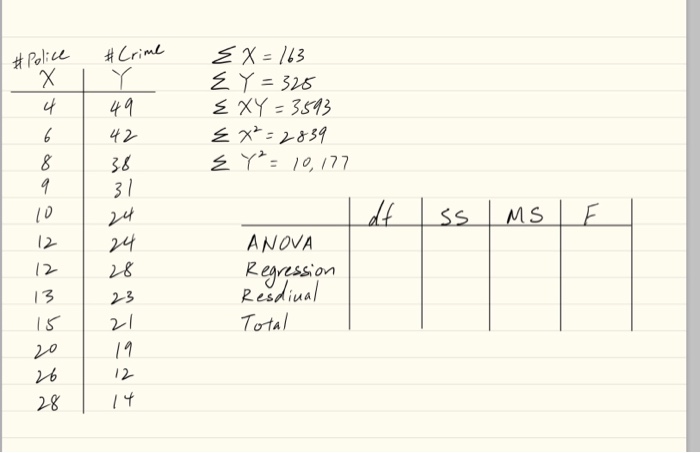 #Police #Crime
X Y
4 49
6 42
8 38
9 31
10 24
12 24
12 28
13 23
15 21
20 19
26 12
28 14
Σ X = 163
Σ Y = 325
Σ XY = 3593
Σ X² = 2839
Σ Y² = 10,177
df SS MS F
ANOVA
Regression
Resdiual
Total